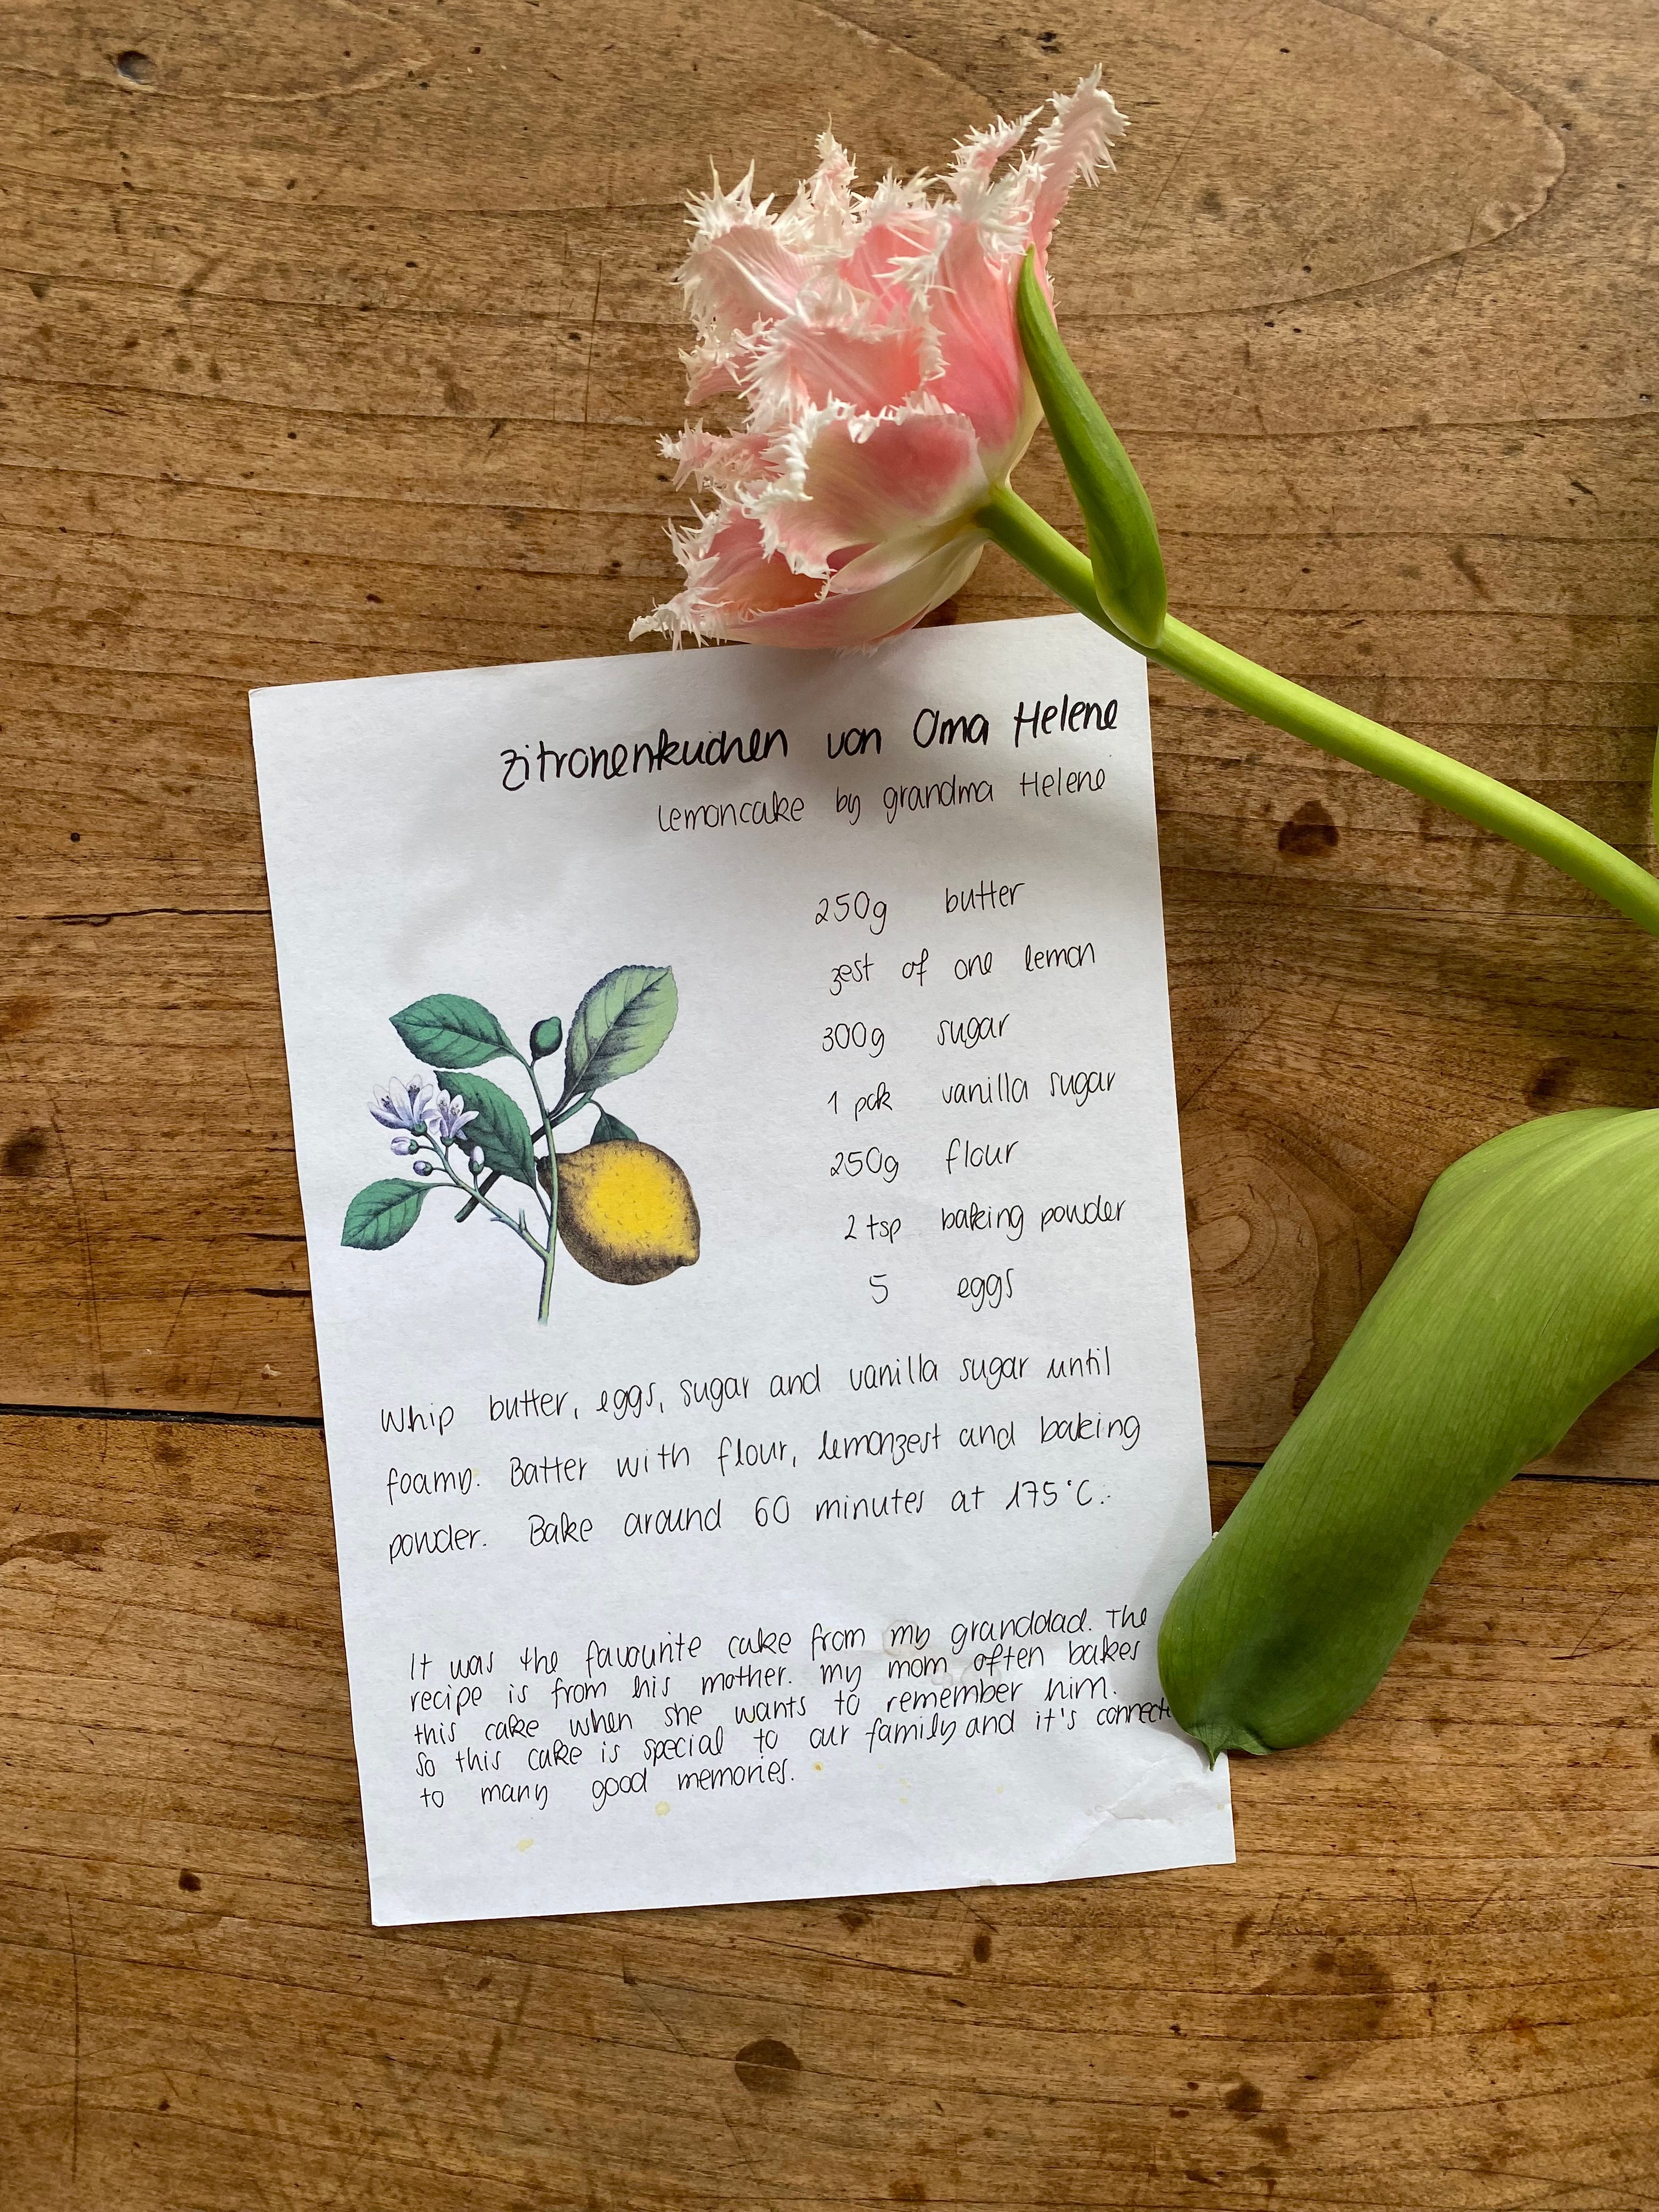 Zitronenkuchen von Oma Helene
Lemoncake by grandma Helene
250g butter
zest of one lemon
300g sugar
1 pck vanilla sugar
250g flour
2 tsp baking powder
5 eggs
Whip butter, eggs, sugar and vanilla sugar until
foamy. Batter with flour, lemonzest and baking
powder. Bake around 60 minutes at 175°C.
It was the favourite cake from my granddad. The
recipe is from his mother. My mom often bakes
this cake when she wants to remember him.
So this cake is special to our family and it's connecte
to many good memories.